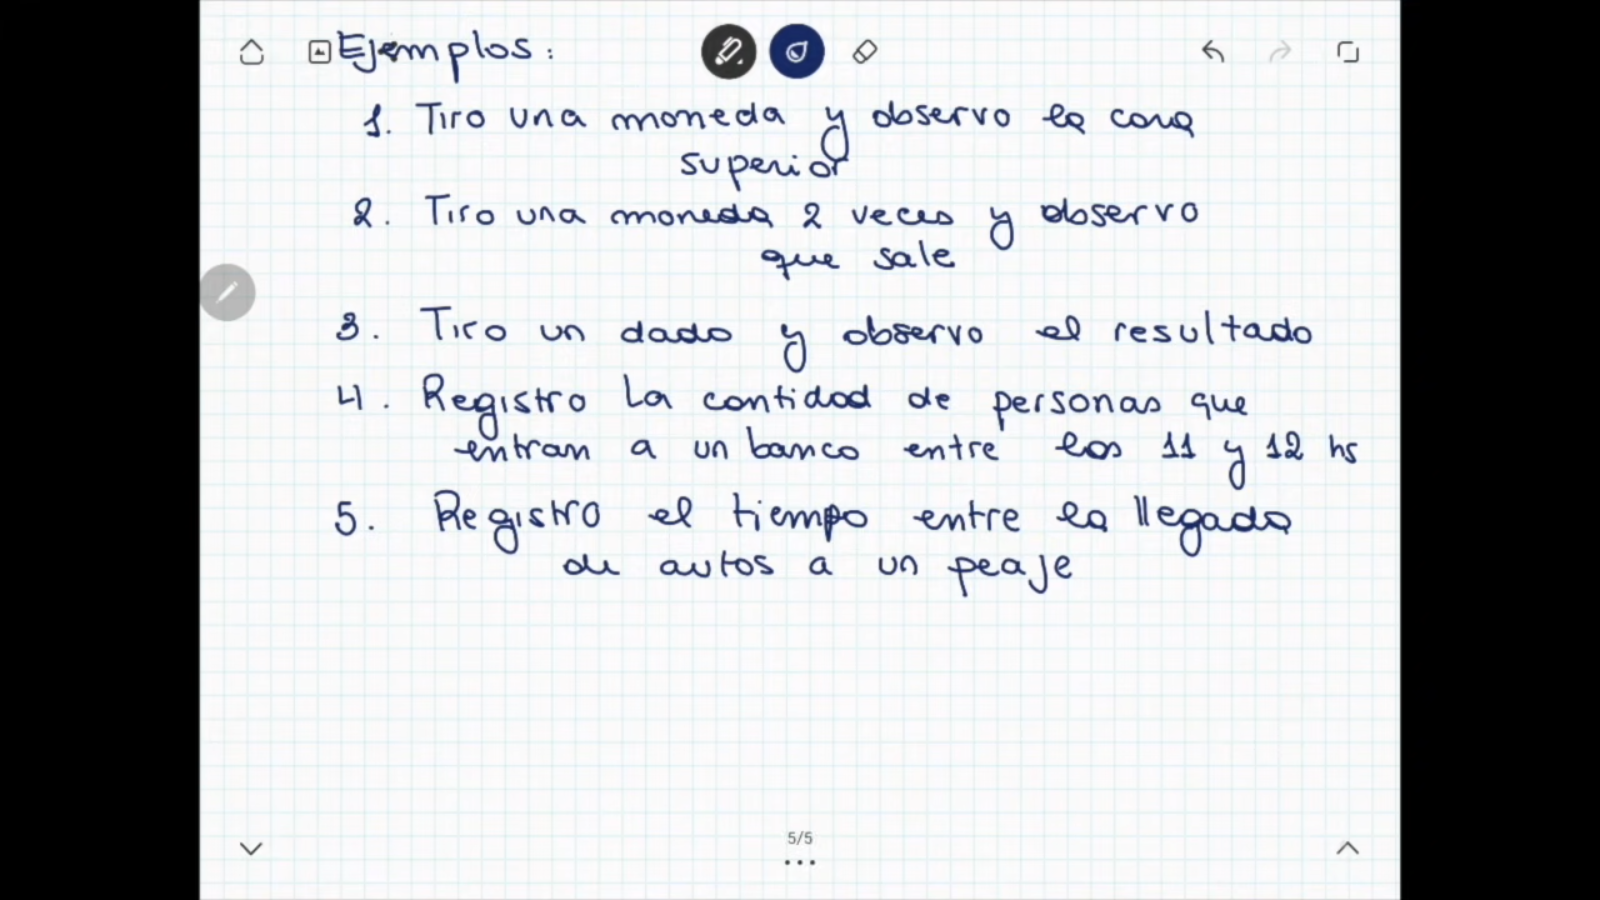 Ejemplos:
1. Tiro una moneda y observo la cara
superior
2. Tiro una moneda 2 veces y observo
que sale
3. Tiro un dado y observo el resultado
4. Registro la cantidad de personas que
entran a un banco entre las 11 y 12 hs
5. Registro el tiempo entre la llegada
de autos a un peaje
5/5